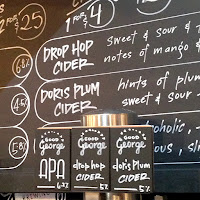 1 FOR $ 4
25
6.8%
DROP HOP CIDER
sweet & sour &
notes of mango &
4.5
DORIS PLUM CIDER
hints of plum
sweet & sour
5.8%
GOOD George
APA
GOOD George
drop hop
CIDER
5%
GOOD George
doris Plum
CIDER
5%
oholic,